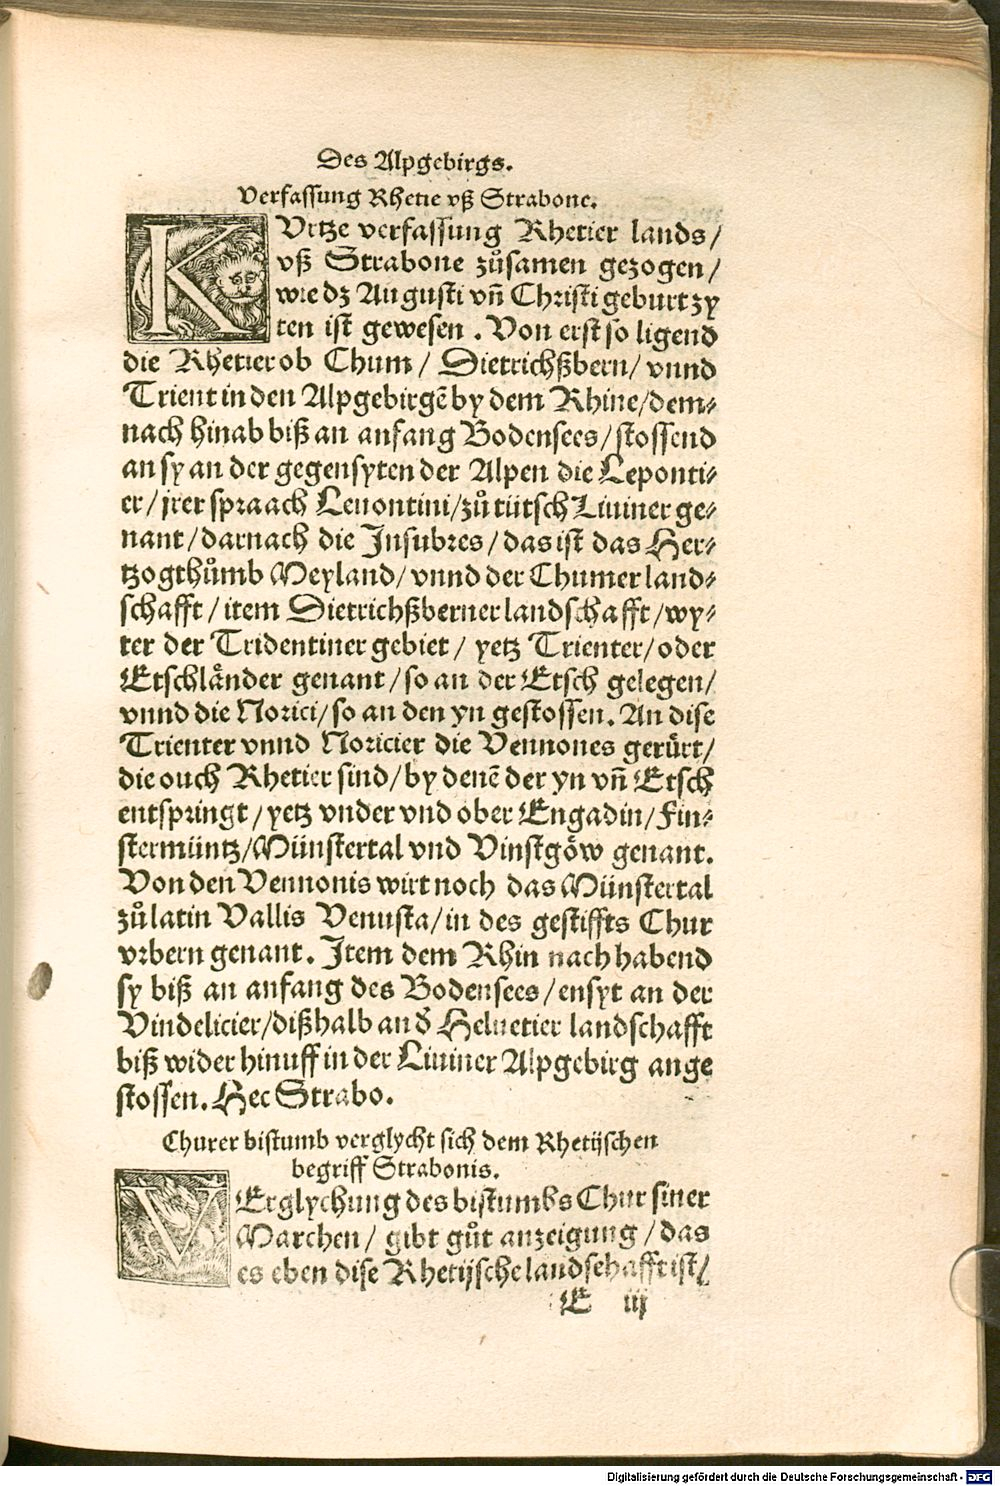 Des Alpgebirgs.
Verfassung Rhetie vß Strabone.
KVrtze verfassung Rhetier lands/
vß Strabone zůsamen gezogen/
wie dz Augusti vñ Christi geburt zy
ten ist gewesen. Von erst so ligend
die Rhetier ob Chum/ Dietrichßbern/ vnnd
Trient in den Alpgebirgẽ by dem Rhine/dem⸗
nach hinab biß an anfang Bodensees/stossend
an sy an der gegensyten der Alpen die Leponti⸗
er/jrer spraach Leuontini/zů tütsch Liuiner ge⸗
nant/darnach die Insubres/das ist das Her⸗
tzogthůmb Meyland/vnnd der Chumer land⸗
schafft/item Dietrichßberner landschafft/wy⸗
ter der Tridentiner gebiet/ yetz Trienter/oder
Etschländer genant/so an der Etsch gelegen/
vnnd die Norici/so an den yn gestossen. An dise
Trienter vnnd Noricier die Vennones gerürt/
die ouch Rhetier sind/by denẽ der yn vñ Etsch
entspringt/yetz vnder vnd ober Engadin/Fin⸗
stermüntz/Münstertal vnd Vinstgöw genant.
Von den Vennonis wirt noch das Münstertal
zů latin Vallis Venusta/in des gestiffts Chur
vrbern genant. Item dem Rhin nach habend
sy biß an anfang des Bodensees/ensyt an der
Vindelicier/dißhalb an d̕ Heluetier landschafft
biß wider hinuff in der Liuiner Alpgebirg ange
stossen. Hec Strabo.
Churer bistumb verglycht sich dem Rhetijschen
begriff Strabonis.
VErglychung des bistumbs Chur siner
Marchen/ gibt gůt anzeigung/das
es eben dise Rhetijsche landschafft ist/
E iij
Digitalisierung gefördert durch die Deutsche Forschungsgemeinschaft - DFG